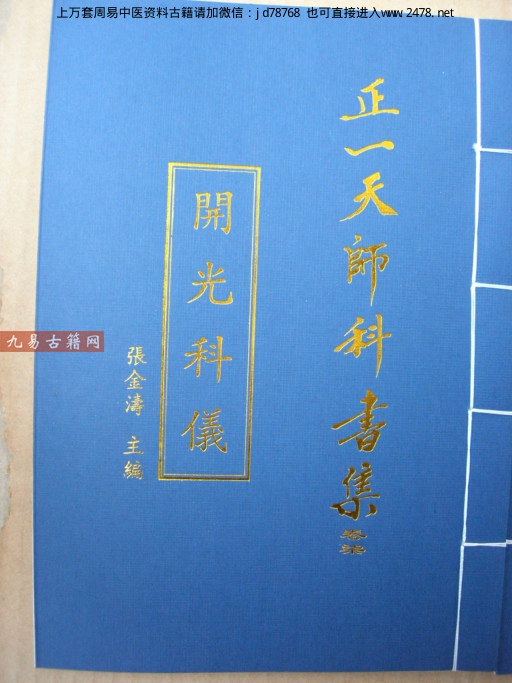 上万套周易中医资料古籍请加微信：jd78768 也可直接进入www.2478.net
正一天師科書集
卷柒
開光科儀
張金濤 主編
九易古籍网